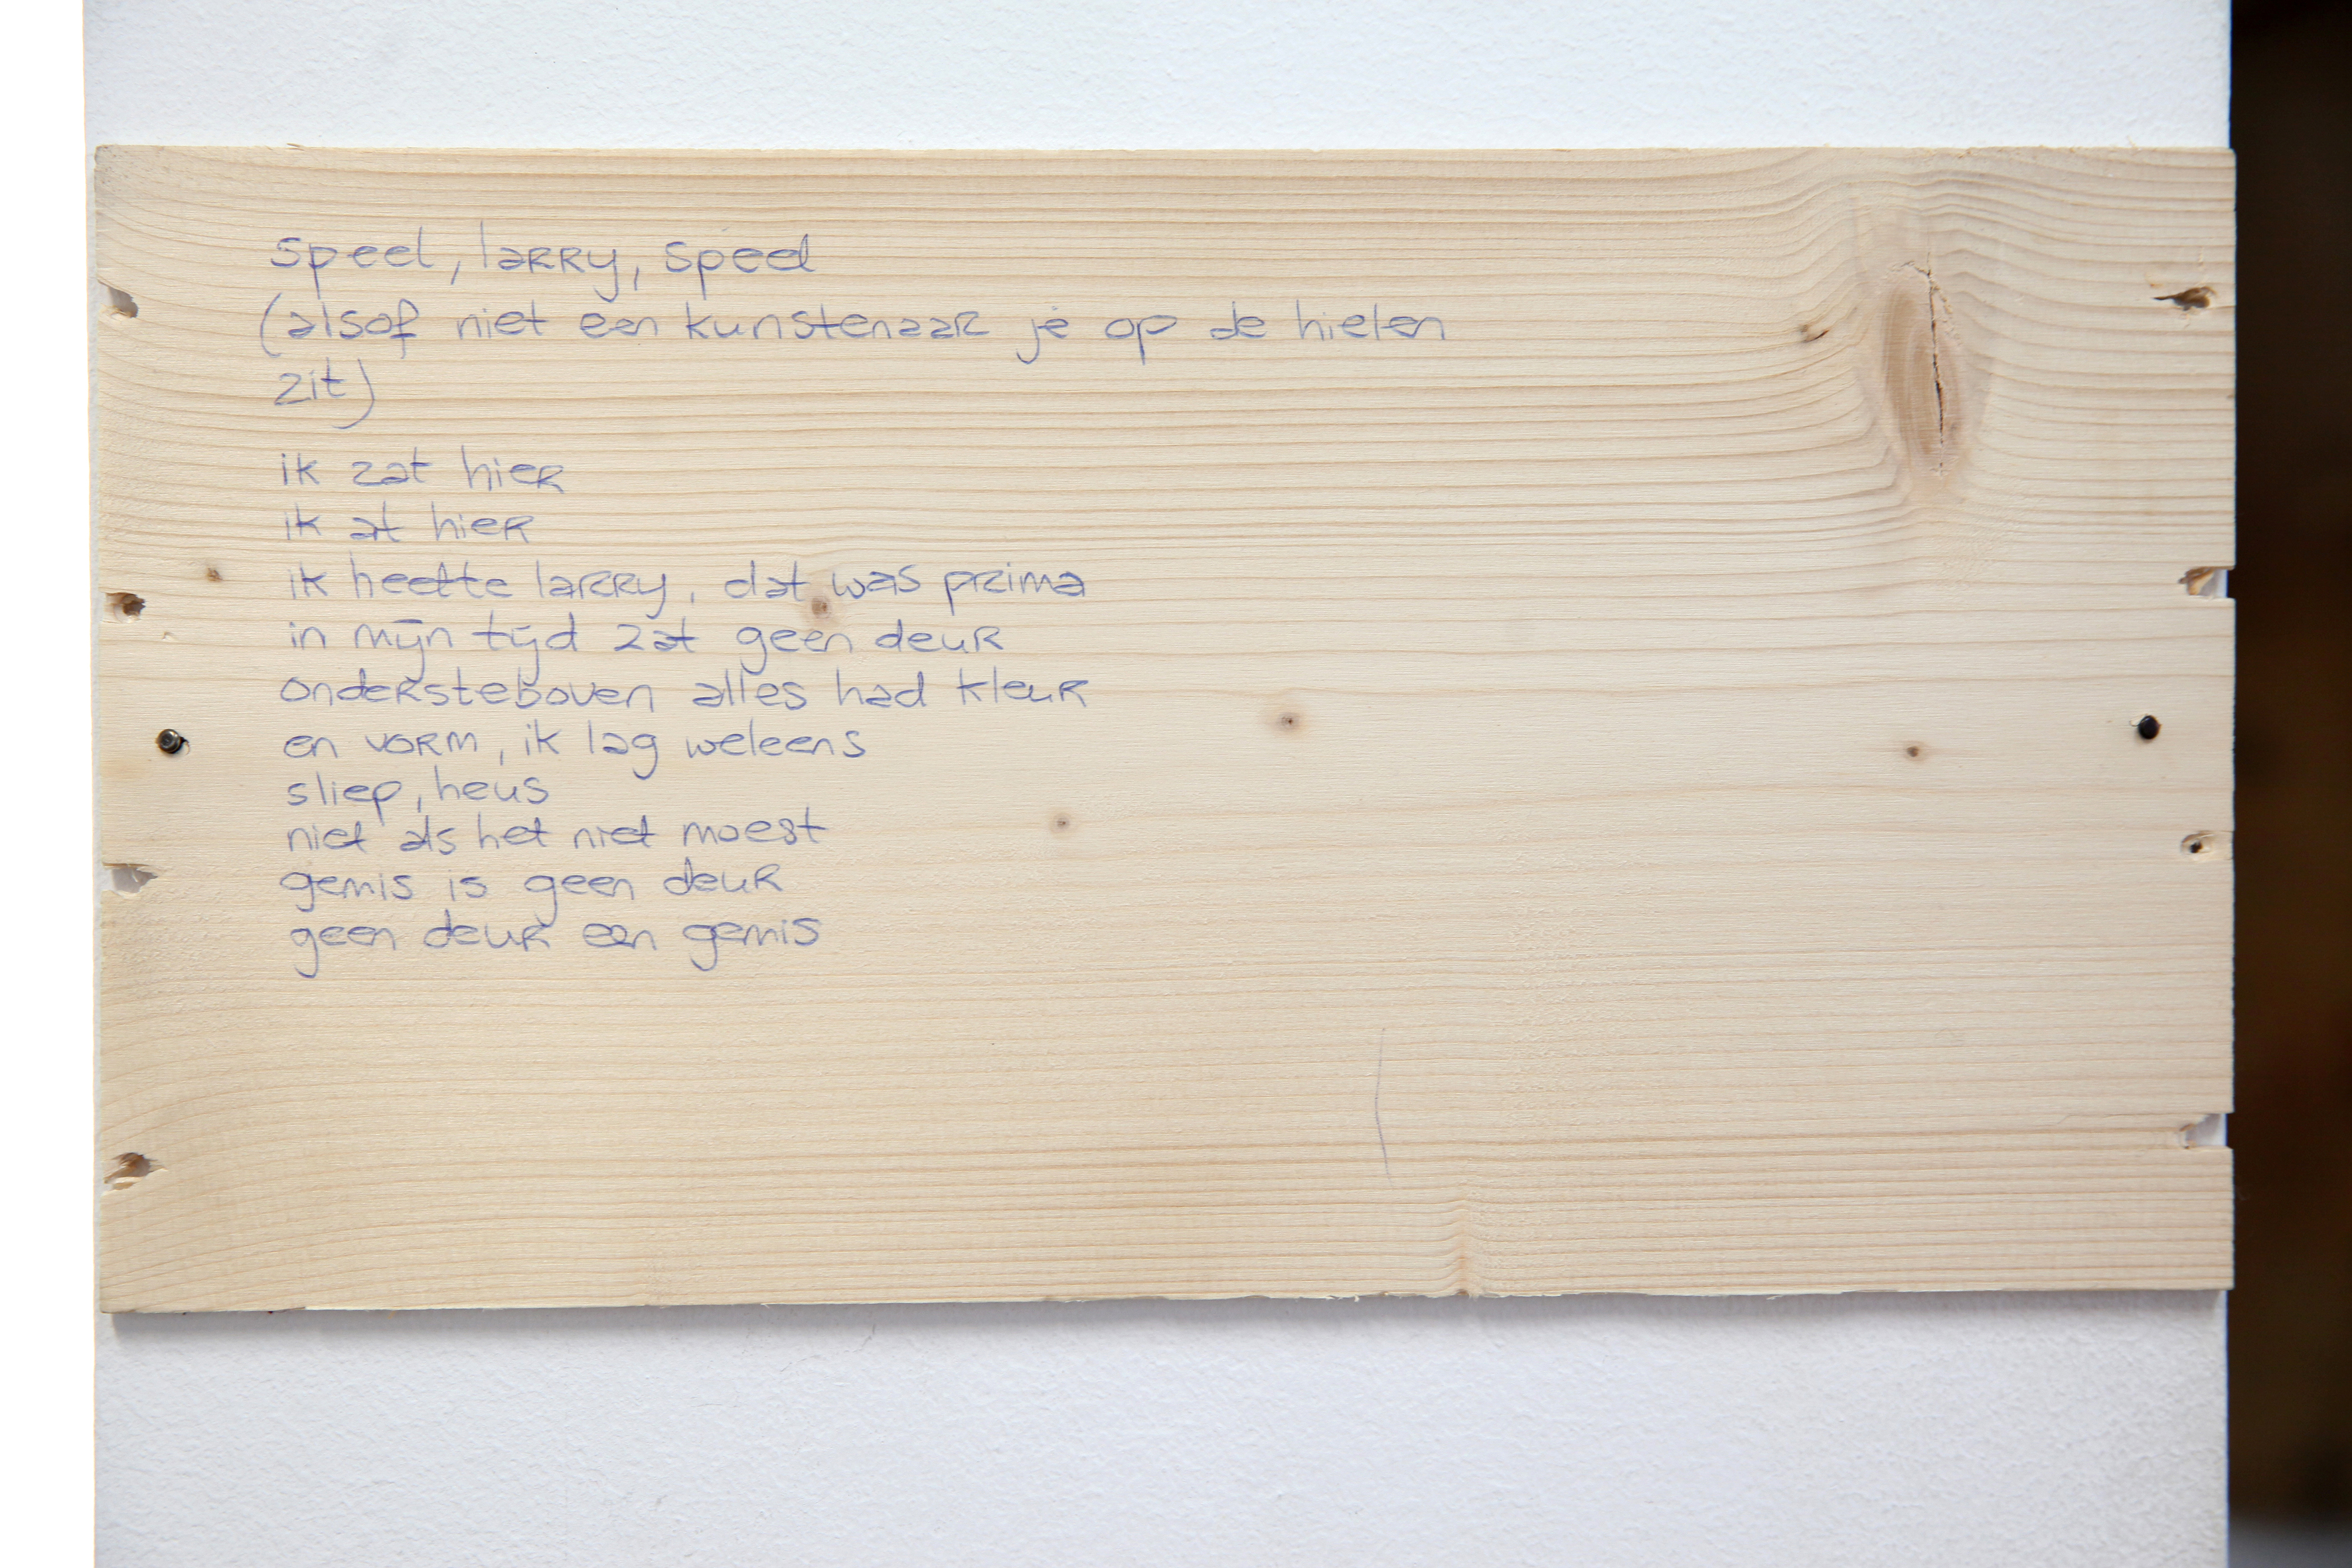 speel, larry, speel
(alsof niet een kunstenaar je op de hielen
zit)
ik zat hier
ik at hier
ik heette larry, dat was prima
in mijn tijd zat geen deur
ondersteboven alles had kleur
en vorm, ik lag weleens
sliep, heus
niet als het niet moest
gemis is geen deur
geen deur een gemis